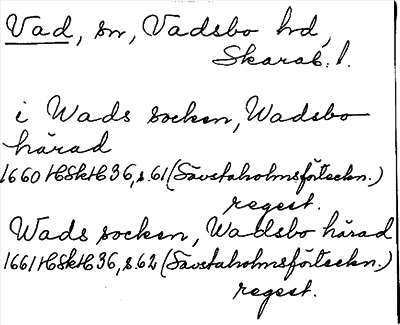 Vad, sn, Vadsbo hd,
Skarab. l.
i Wads socken, Wadsbo
härad
1660 HSkH 36, s. 61 (Sävstaholmsförteckn.)
regest.
Wads socken, Wadsbo härad
1661 HSkH 36, s. 62 (Sävstaholmsförteckn.)
regest.